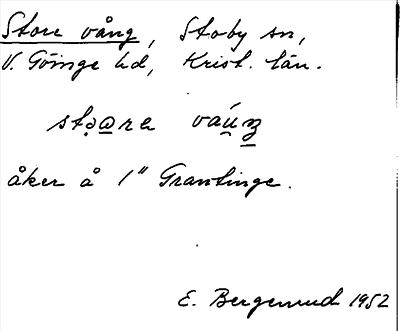 Store vång, Stoby sn,
V. Göinge hd, Krist. län.
åker å 1" Grantinge.
E. Bergemud 1952